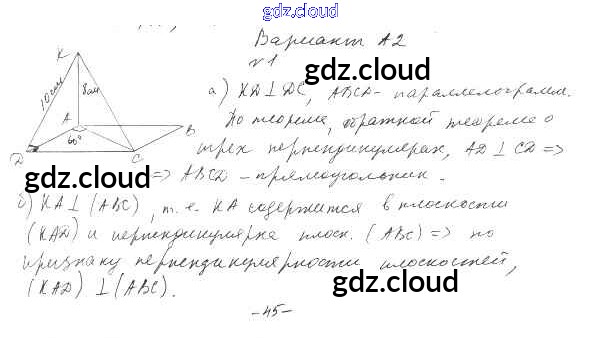 gdz.cloud
Вариант А2
gdz.cloud
№1
K
10см
8см
а) KD⊥DC, ABCD - параллелограмм.
gdz.cloud
A
B
60°
По теореме, обратной теореме о
D
C
трех перпендикулярах, AD⊥CD =>
gdz.cloud
=> ABCD - прямоугольник.
gdz.cloud
б) KA⊥(ABC), т.е. KA содержится в плоскости
(KAD) и перпендикулярна плоск. (ABC) => по
gdz.cloud
признаку перпендикулярности плоскостей,
(KAD)⊥(ABC).
gdz.cloud
-45-